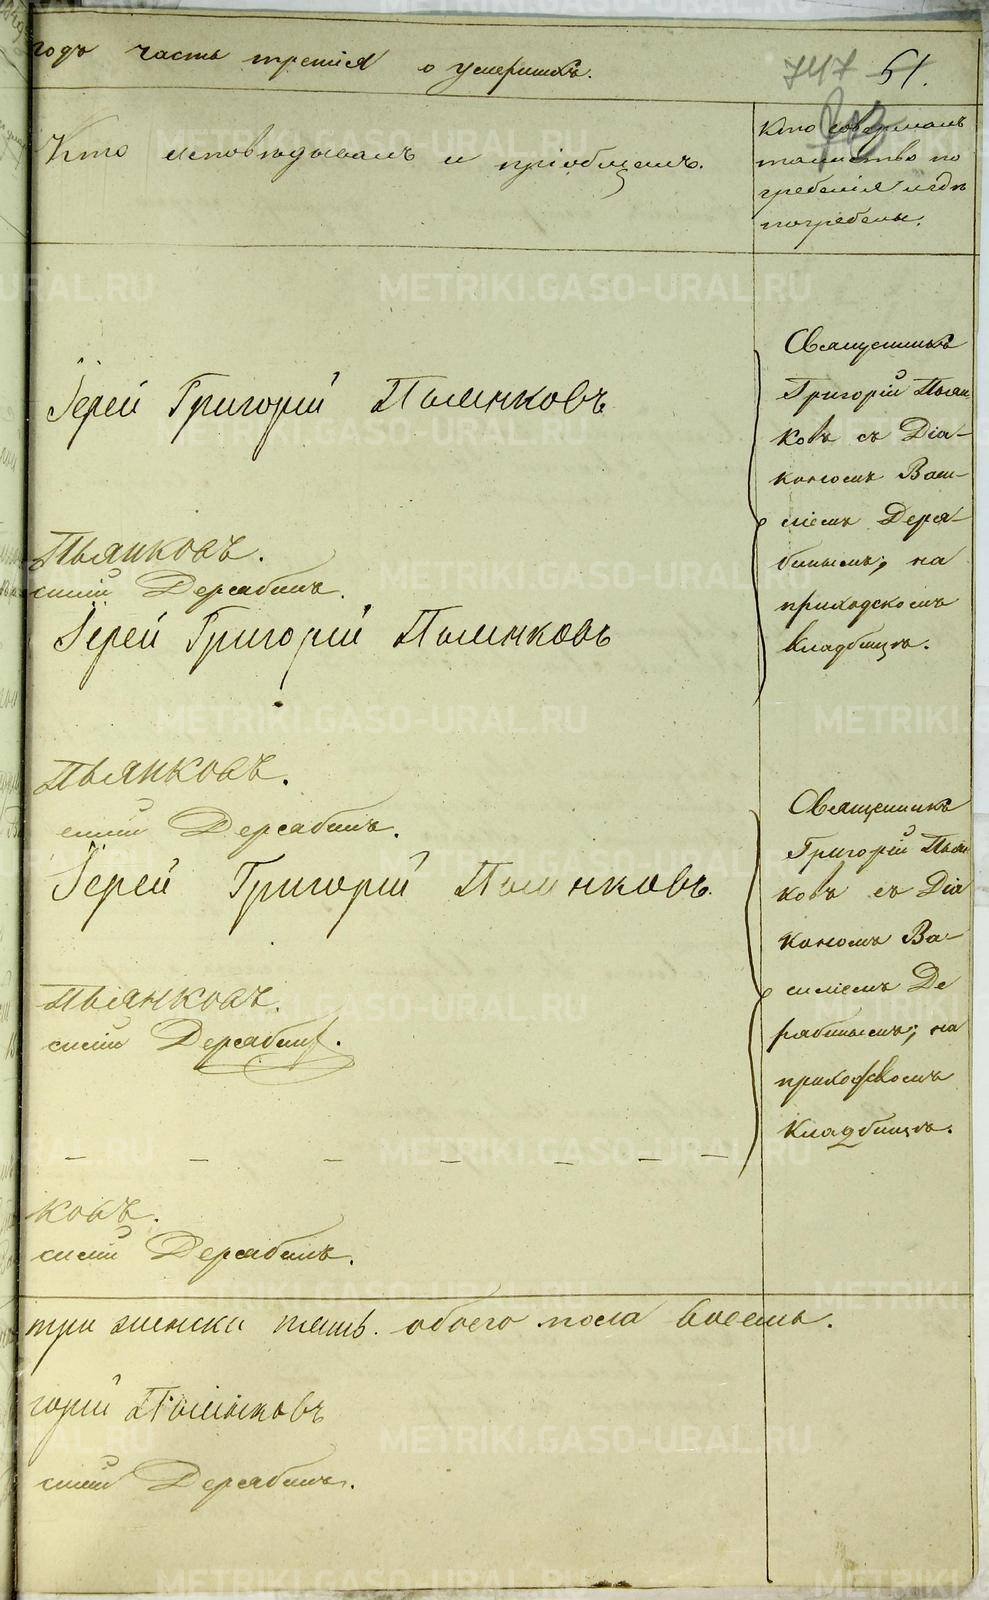 годъ часть третія о умершихъ.
747 51.
Кто исповѣдывалъ и пріобщалъ.
Кто совершалъ
таинство по
гребенія и гдѣ
погребены.
Іерей Григорій Пьянковъ
Священникъ
Григорій Пьян
ковъ съ Діа-
кономъ Васи-
ліемъ Деря-
бинымъ; на
приходскомъ
кладбищѣ.
Пьянковъ.
силій Дерябинъ.
Іерей Григорій Пьянковъ
Пьянковъ.
силій Дерябинъ.
Іерей Григорій Пьянковъ.
Священникъ
Григорій Пьян
ковъ съ Діа
кономъ Ва-
силіемъ Де
рябинымъ; на
приходскомъ
кладбищѣ.
Пьянковъ.
силій Дерябинъ.
ковъ.
силій Дерябинъ.
три женска пять. обоего пола восемь.
горій Пьянковъ
силій Дерябинъ.
METRIKI.GASO-URAL.RU